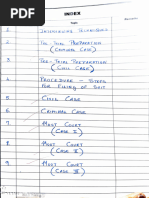 INDEX
Topic
1. INTERVIEWING TECHNIQUES
2. PRE-TRIAL PREPARATION
(CRIMINAL CASE)
3. PRE-TRIAL PREPARATION
(CIVIL CASE)
4. PROCEDURE - STEPS
FOR FILING OF SUIT
5. CIVIL CASE
6. CRIMINAL CASE
7. MOOT COURT
(CASE I)
8. MOOT COURT
(CASE II)
9. MOOT COURT
(CASE III)